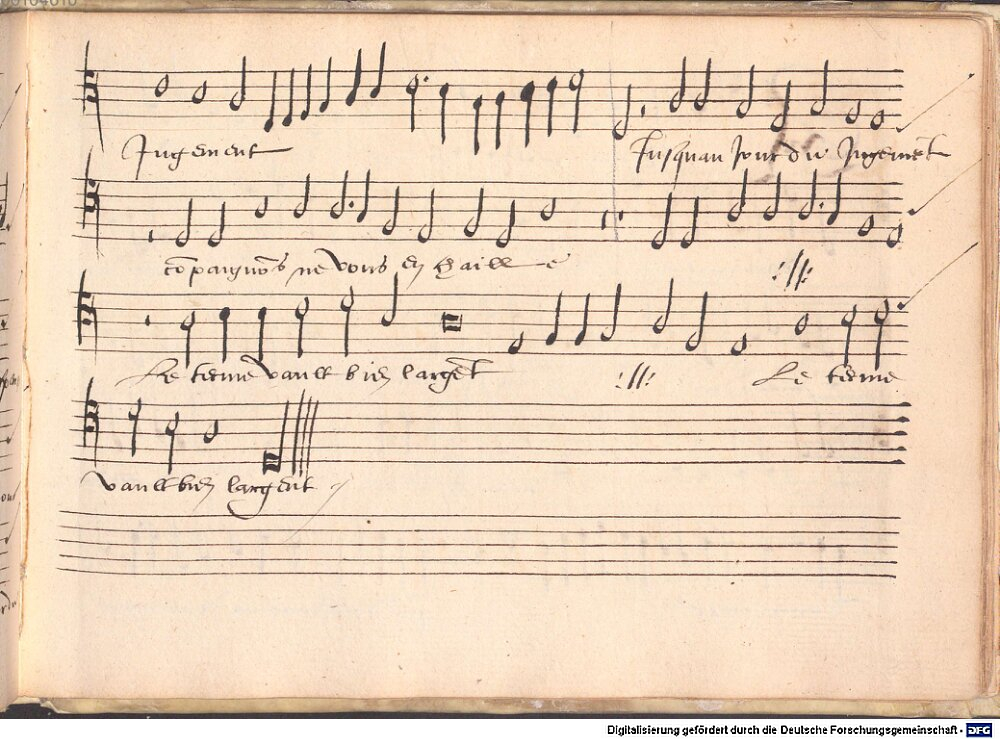 Jugement Jusquau jour du Jugemēt
cōpaignōs ne vous en chaille :||:
Le terme vault bien largēt :||: Le terme
vault bien largent
Digitalisierung gefördert durch die Deutsche Forschungsgemeinschaft - DFG